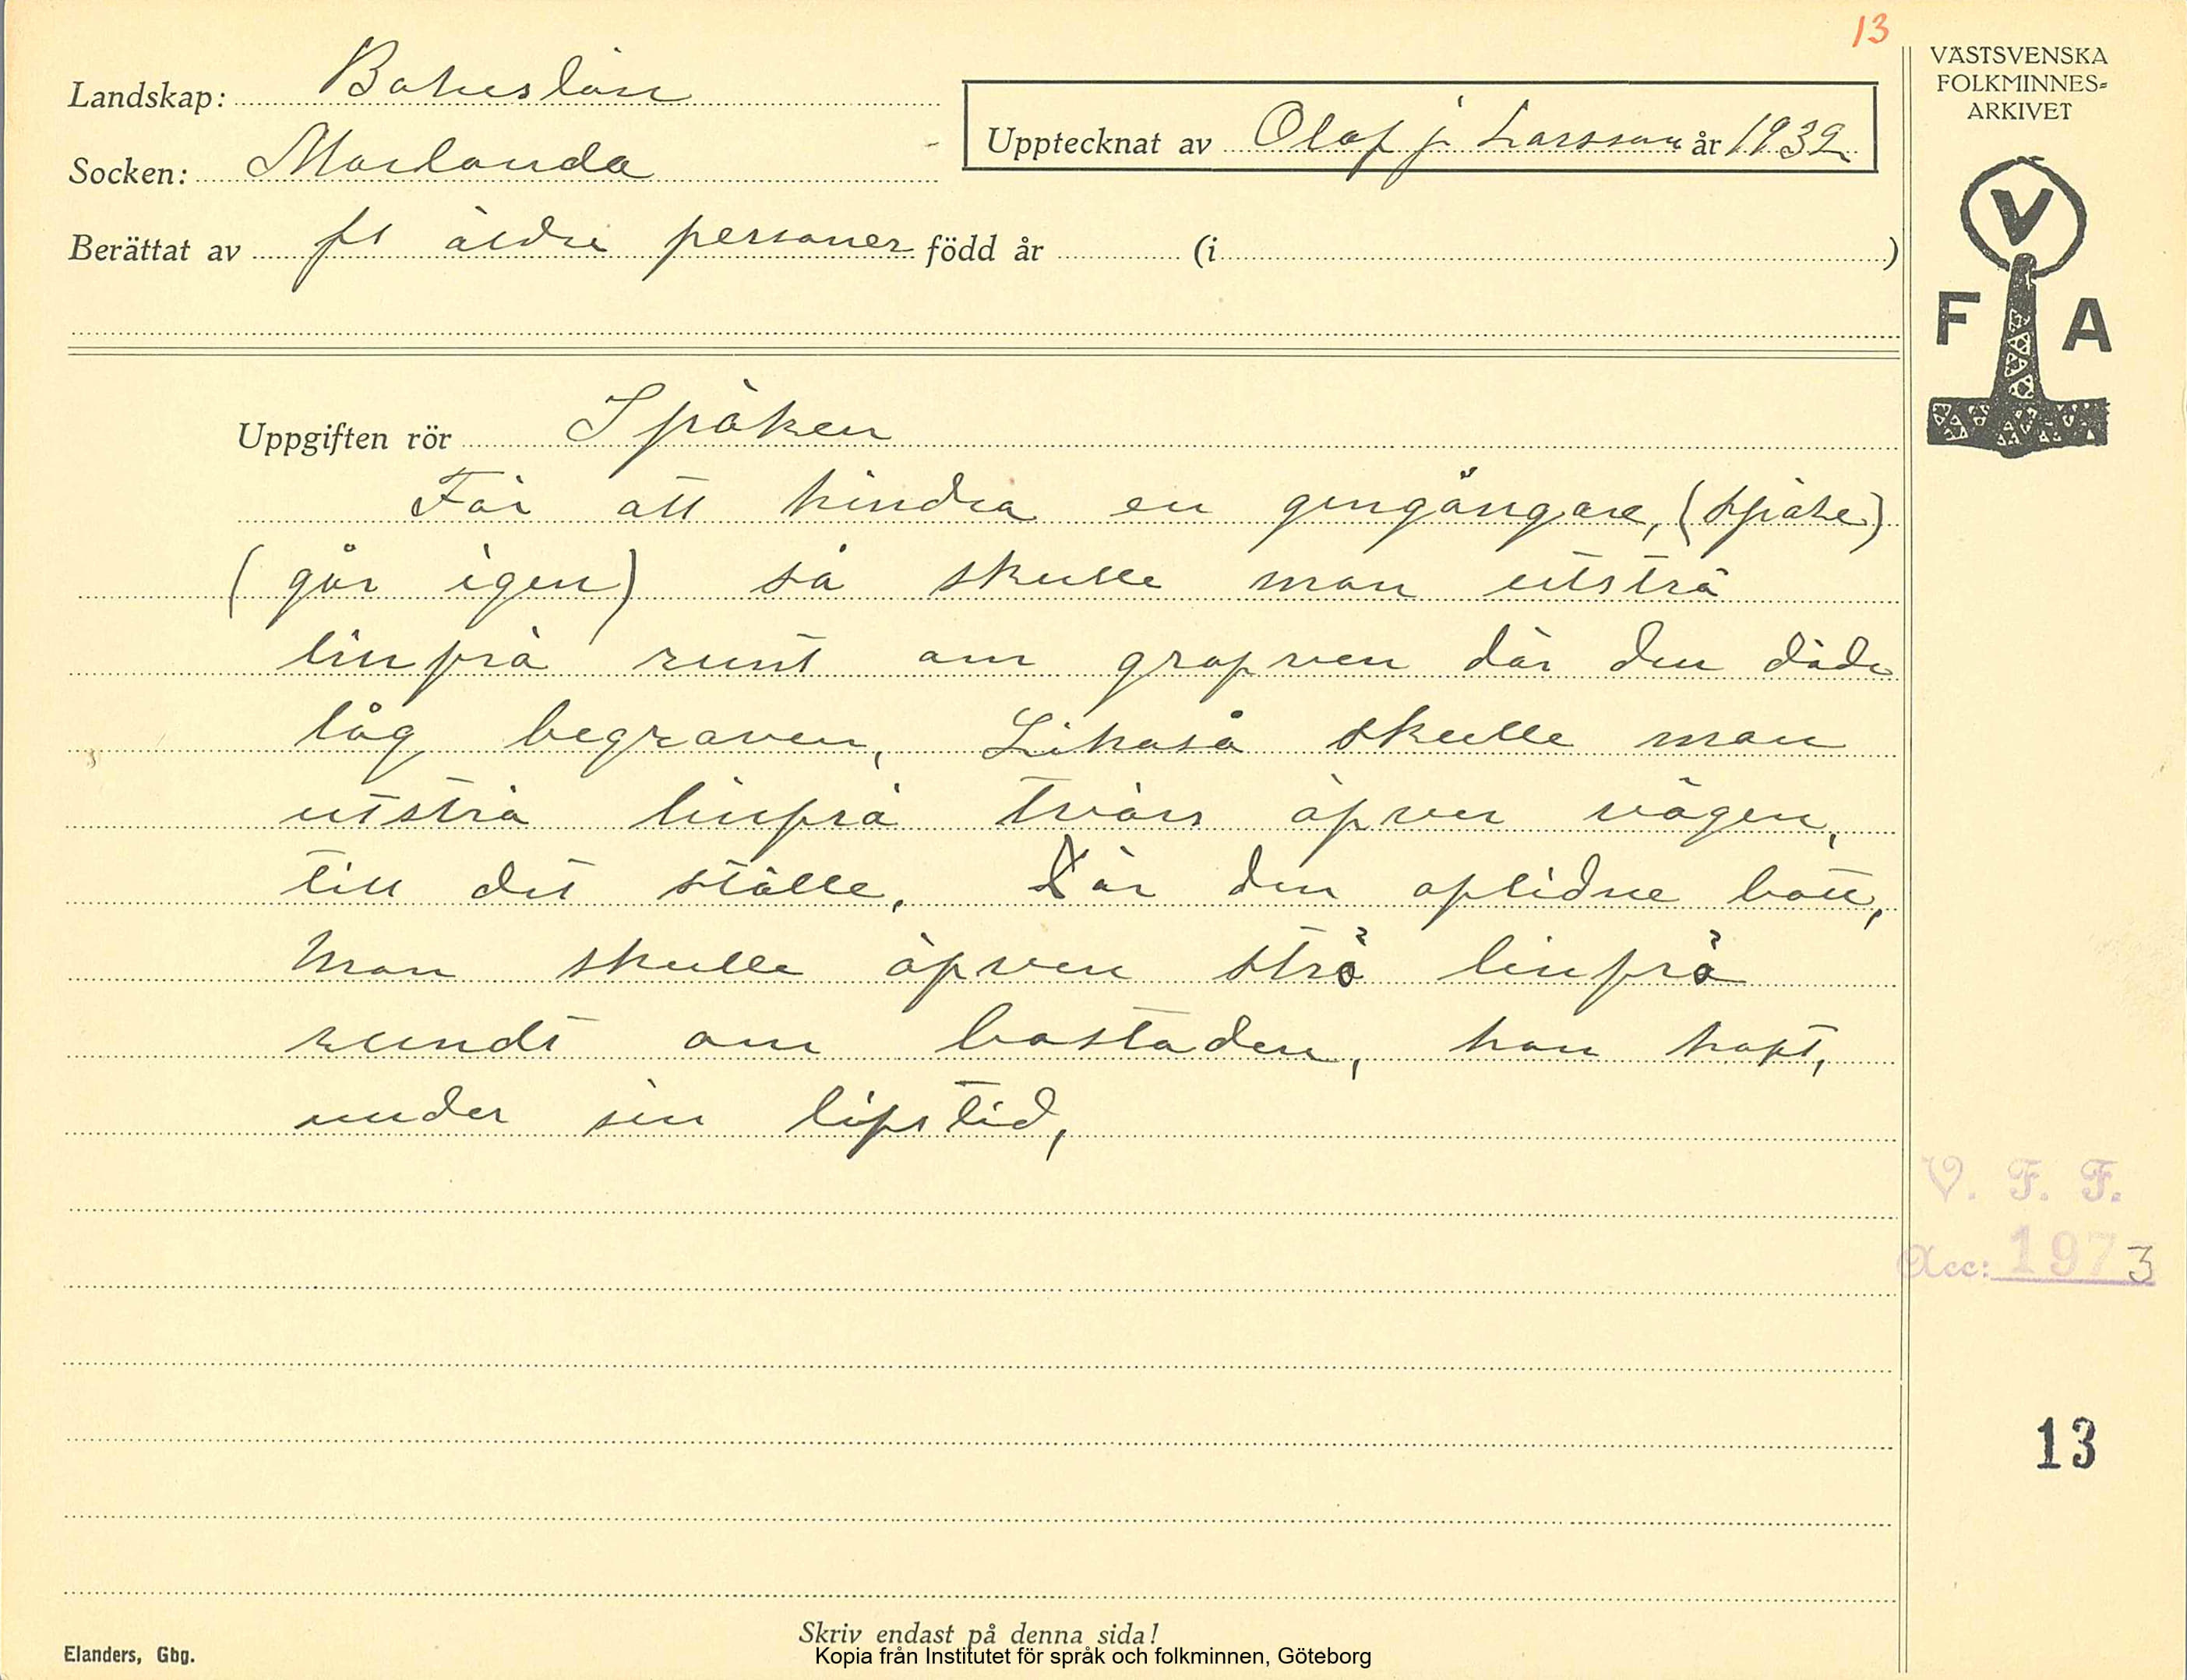 13
VÄSTSVENSKA
FOLKMINNES=
ARKIVET
Landskap: Bohuslän
Upptecknat av Olof j. Larsson år 1932
Socken: Morlanda
Berättat av fl äldre personer född år (i )
V
F A
Uppgiften rör Spöken
För att hindra en gengångare, (spöke)
(går igen) så skulle man utströ
linfrö runt om grafven där den döde
låg begraven, Likaså skulle man
utströ linfrö tvärs öfver vägen,
till det ställe, Där den aflidne bott,
Man skulle äfven strö linfrö
rundt om bostaden, han haft,
under sin lifstid,
V. F. F.
Acc: 1973
13
Skriv endast på denna sida!
Elanders, Gbg.
Kopia från Institutet för språk och folkminnen, Göteborg